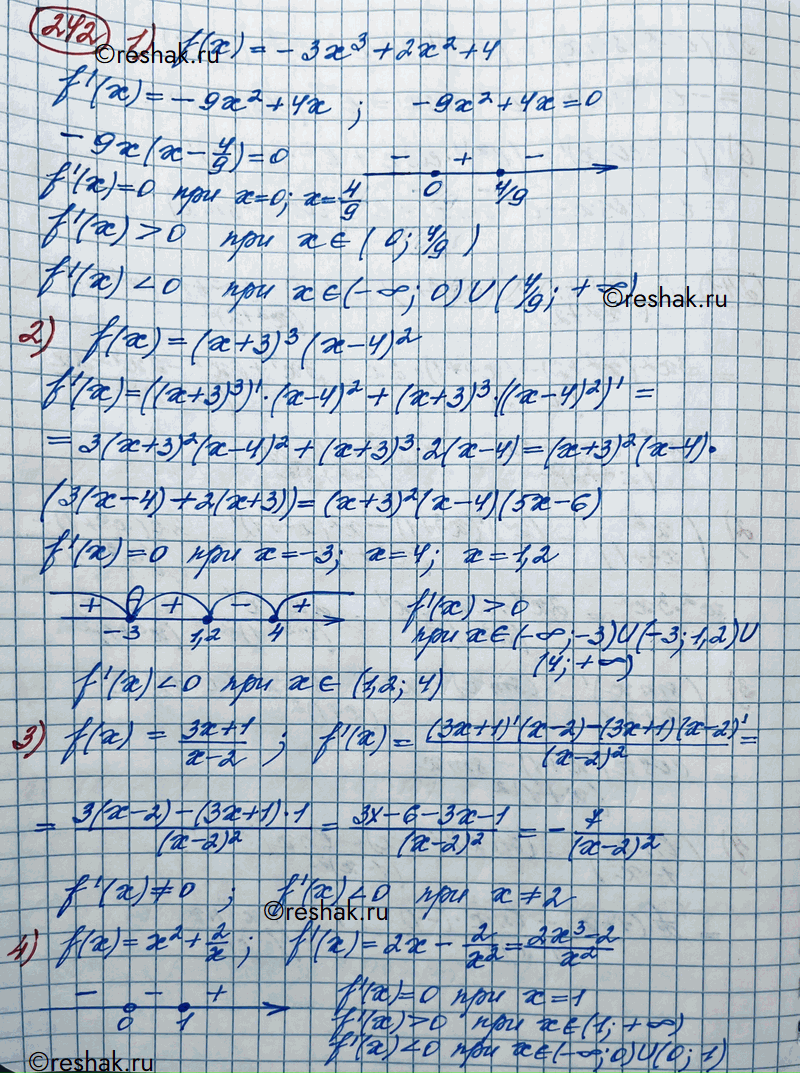 242 1) f(x) = -3x³ + 2x² + 4
©reshak.ru
f'(x) = -9x² + 4x ; -9x² + 4x = 0
-9x(x - 4/9) = 0
- + -
0 4/9
f'(x) = 0 при x=0; x = 4/9
f'(x) > 0 при x ∈ ( 0; 4/9 )
f'(x) < 0 при x ∈ (-∞; 0) ∪ (4/9; +∞)
©reshak.ru
2) f(x) = (x+3)³ (x-4)²
f'(x) = ((x+3)³)' · (x-4)² + (x+3)³ · ((x-4)²)' =
= 3(x+3)² (x-4)² + (x+3)³ · 2(x-4) = (x+3)² (x-4) ·
(3(x-4) + 2(x+3)) = (x+3)² (x-4) (5x-6)
f'(x) = 0 при x = -3; x = 4; x = 1,2
+ + - +
-3 1,2 4
f'(x) > 0
при x ∈ (-∞; -3) ∪ (-3; 1,2) ∪
(4; +∞)
f'(x) < 0 при x ∈ (1,2; 4)
3) f(x) = (3x+1)/(x-2) ; f'(x) = ((3x+1)' (x-2) - (3x+1) (x-2)')/(x-2)² =
= (3(x-2) - (3x+1) · 1)/(x-2)² = (3x - 6 - 3x - 1)/(x-2)² = - 7/(x-2)²
f'(x) ≠ 0 ; f'(x) < 0 при x ≠ 2
©reshak.ru
4) f(x) = x² + 2/x ; f'(x) = 2x - 2/x² = (2x³ - 2)/x²
- - +
0 1
f'(x) = 0 при x = 1
f'(x) > 0 при x ∈ (1; +∞)
f'(x) < 0 при x ∈ (-∞; 0) ∪ (0; 1)
©reshak.ru